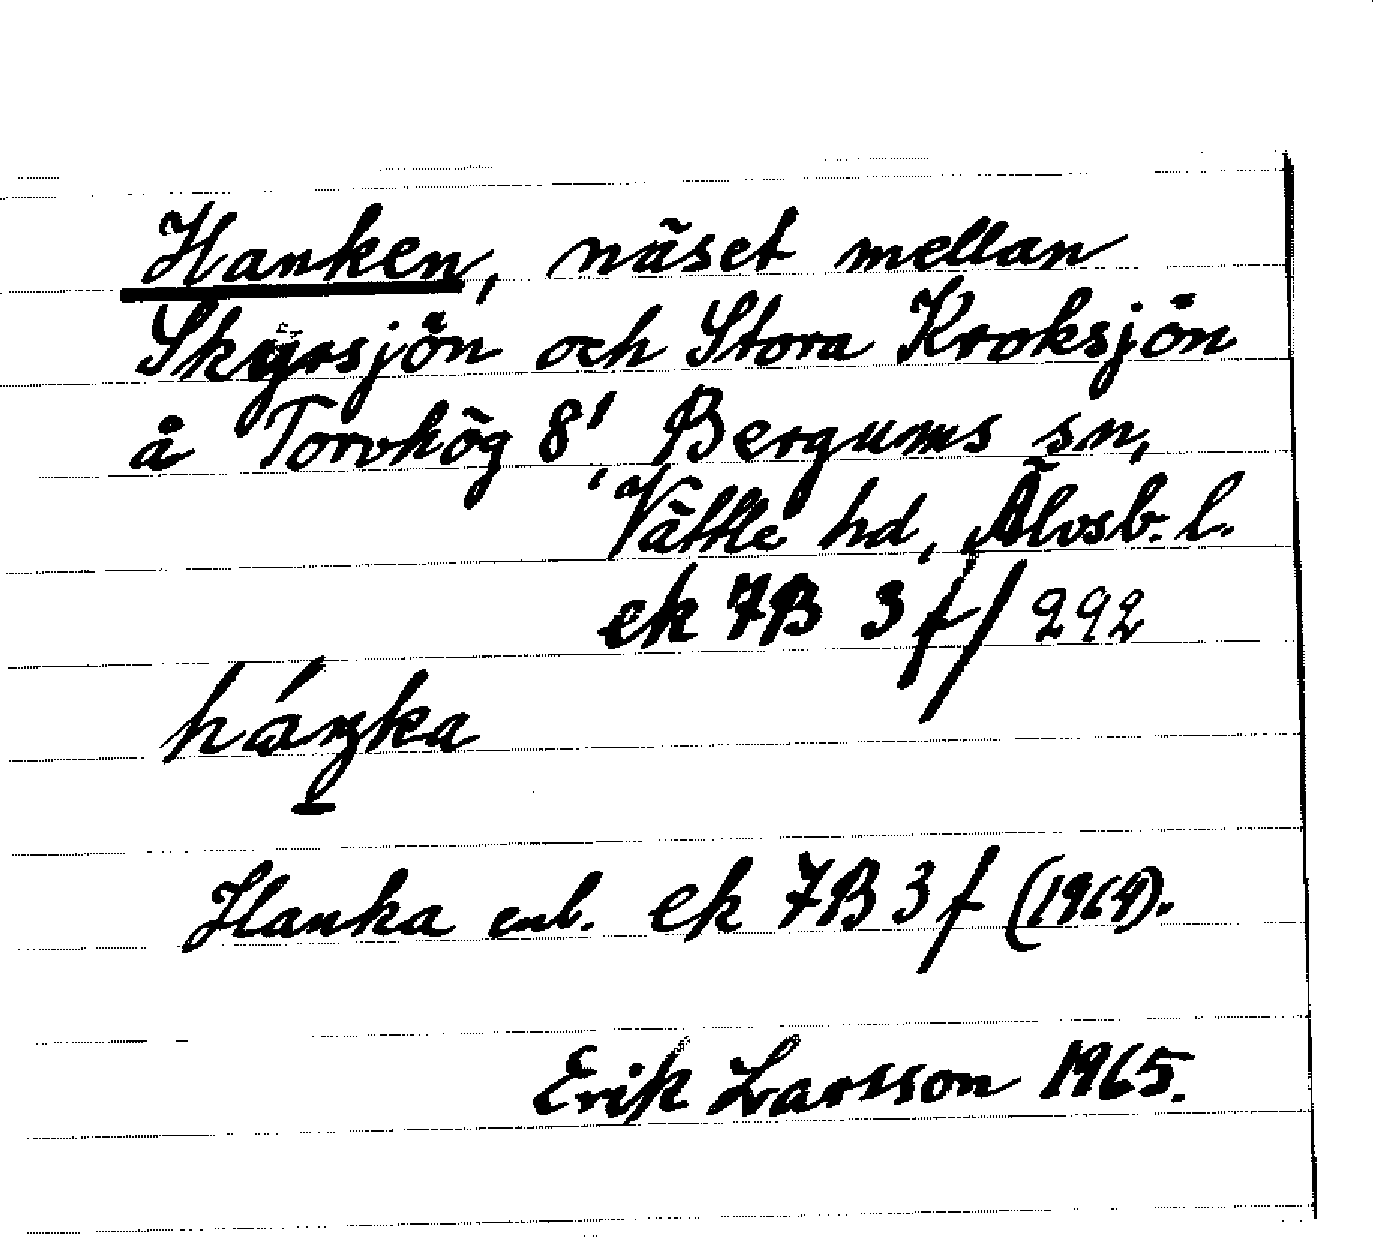 Hanken, näset mellan
Skyrsjön och Stora Kroksjön
å Torvhög 8', Bergums sn,
Vättle hd, Älvsb. l.
ek 7B 3f/292
háŋka
Hanka enl. ek 7B3f (1964).
Erik Larsson 1965.